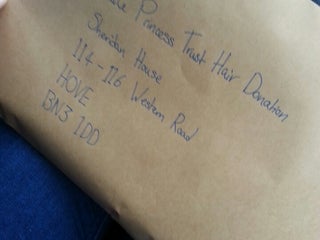 Princess Trust Hair Donation
Sheridan House
114-116 Western Road
HOVE
BN3 1DD